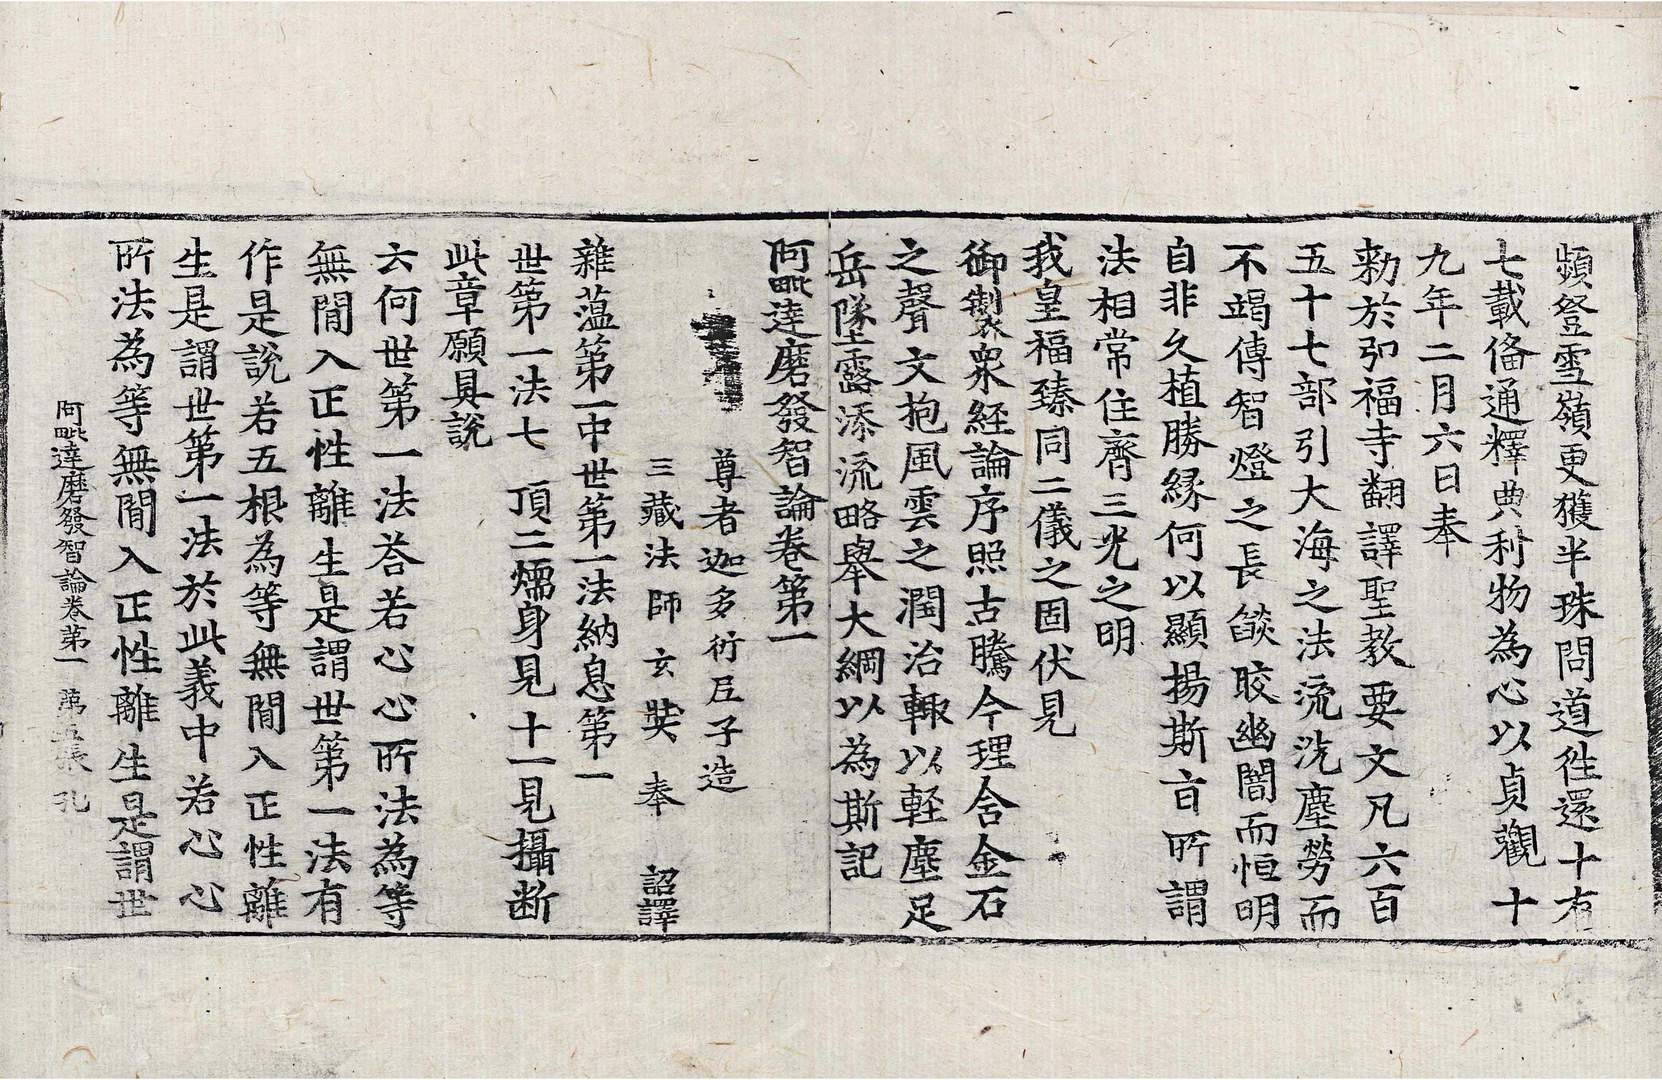 頻登雪嶺更獲半珠問道往還十有
七載俻通釋典利物為心以貞觀十
九年二月六日奉
勑於弘福寺翻譯聖教要文凡六百
五十七部引大海之法流洗塵勞而
不竭傳智燈之長燄皎幽闇而恒明
自非久植勝緣何以顯揚斯旨所謂
法相常住齊三光之明
我皇福臻同二儀之固伏見
御製衆經論序照古騰今理含金石
之聲文抱風雲之潤治輙以輕塵足
岳墜露添流略舉大綱以為斯記
阿毗達磨發智論卷第一
尊者迦多衍尼子造
三藏法師玄奘奉 詔譯
雜蘊第一中世第一法納息第一
世第一法七 頂二煗身見十一見攝断
此章願具說
云何世第一法荅若心心所法為等
無間入正性離生是謂世第一法有
作是說若五根為等無間入正性離
生是謂世第一法於此義中若心心
所法為等無間入正性離生是謂世
阿毗達磨發智論卷第一 第五張 孔